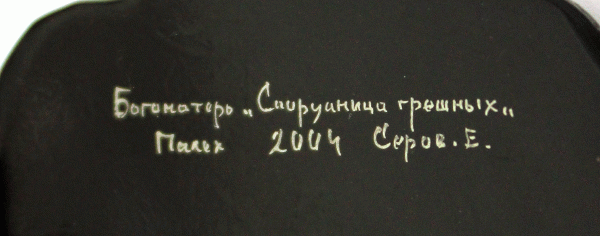 Богоматерь „Споручница грешных„
Палех 2004 Серов. Е.